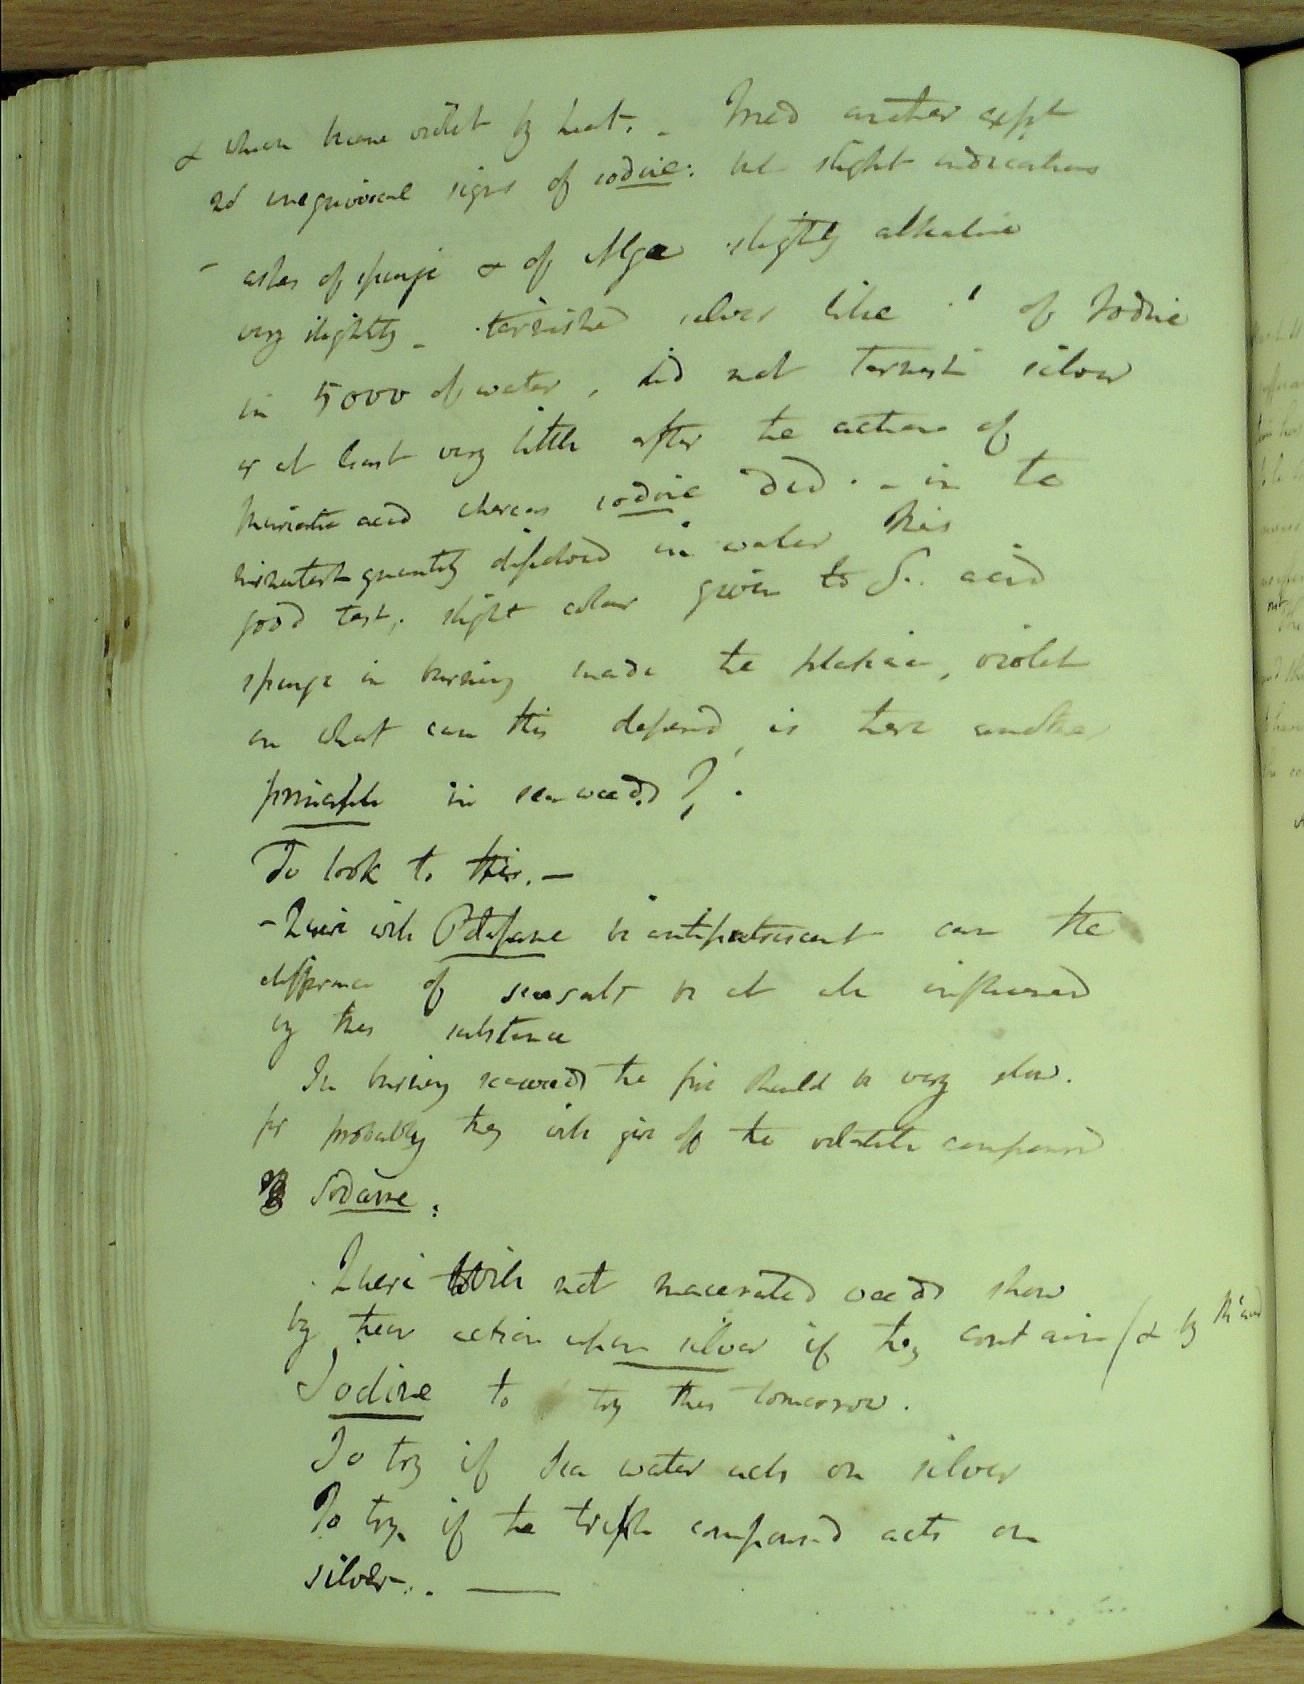 & when became violet by heat. - Tried another expt
no unequivocal signs of iodine: but slight indications
- ashes of sponge & of Algae slightly alkaline
very slightly - tarnished silver like .1 of Iodine
in 5000 of water, did not tarnish silver
or at least very little after the action of
Muriatic acid whereas iodine did. - in the
minutest quantity dissolved in water this
good test; slight colour given to S. acid
sponge in burning made the platina, violet
on what can this depend, is there another
principle in sea weeds?.
To look to this. —
- Quere will Potassane be antiputrescent can the
difference of sea salt be at all influenced
by this substance
In burning seaweeds the fire should be very slow.
for probably they will give off the volatile compound
Sodane.
Quere Will not macerated weeds show
by their action upon silver if they contain (& by
Iodine to try this tomorrow.
To try if Sea water acts on silver
To try if the triple compound acts on
silver. . —